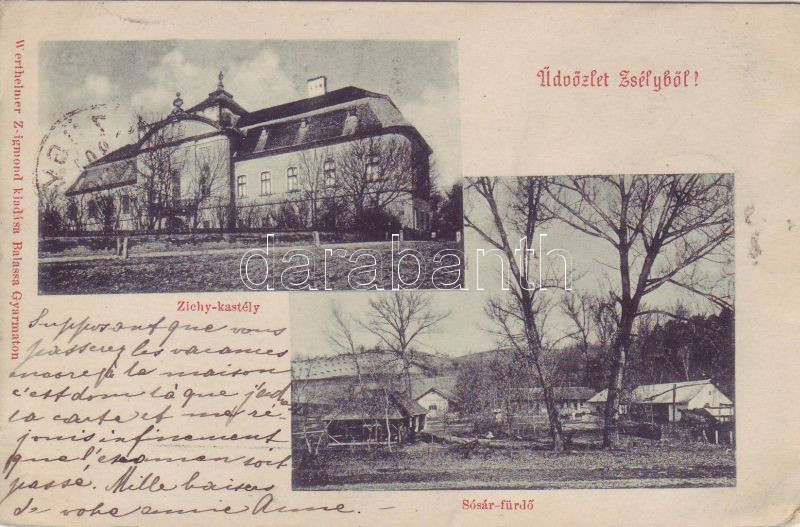 Üdvözlet Zsélyből!
Werthelmer Zsigmond kiadása Balassa Gyarmaton
Zichy-kastély
darabanth
Supposant que vous
passerez les vacances
encore à la maison
c'est donc là que j'adr.
la carte et me ré
jouis infinement
que l'examen soit
passé. Mille baisers
de votre amie Anne.
Sósár-fürdő